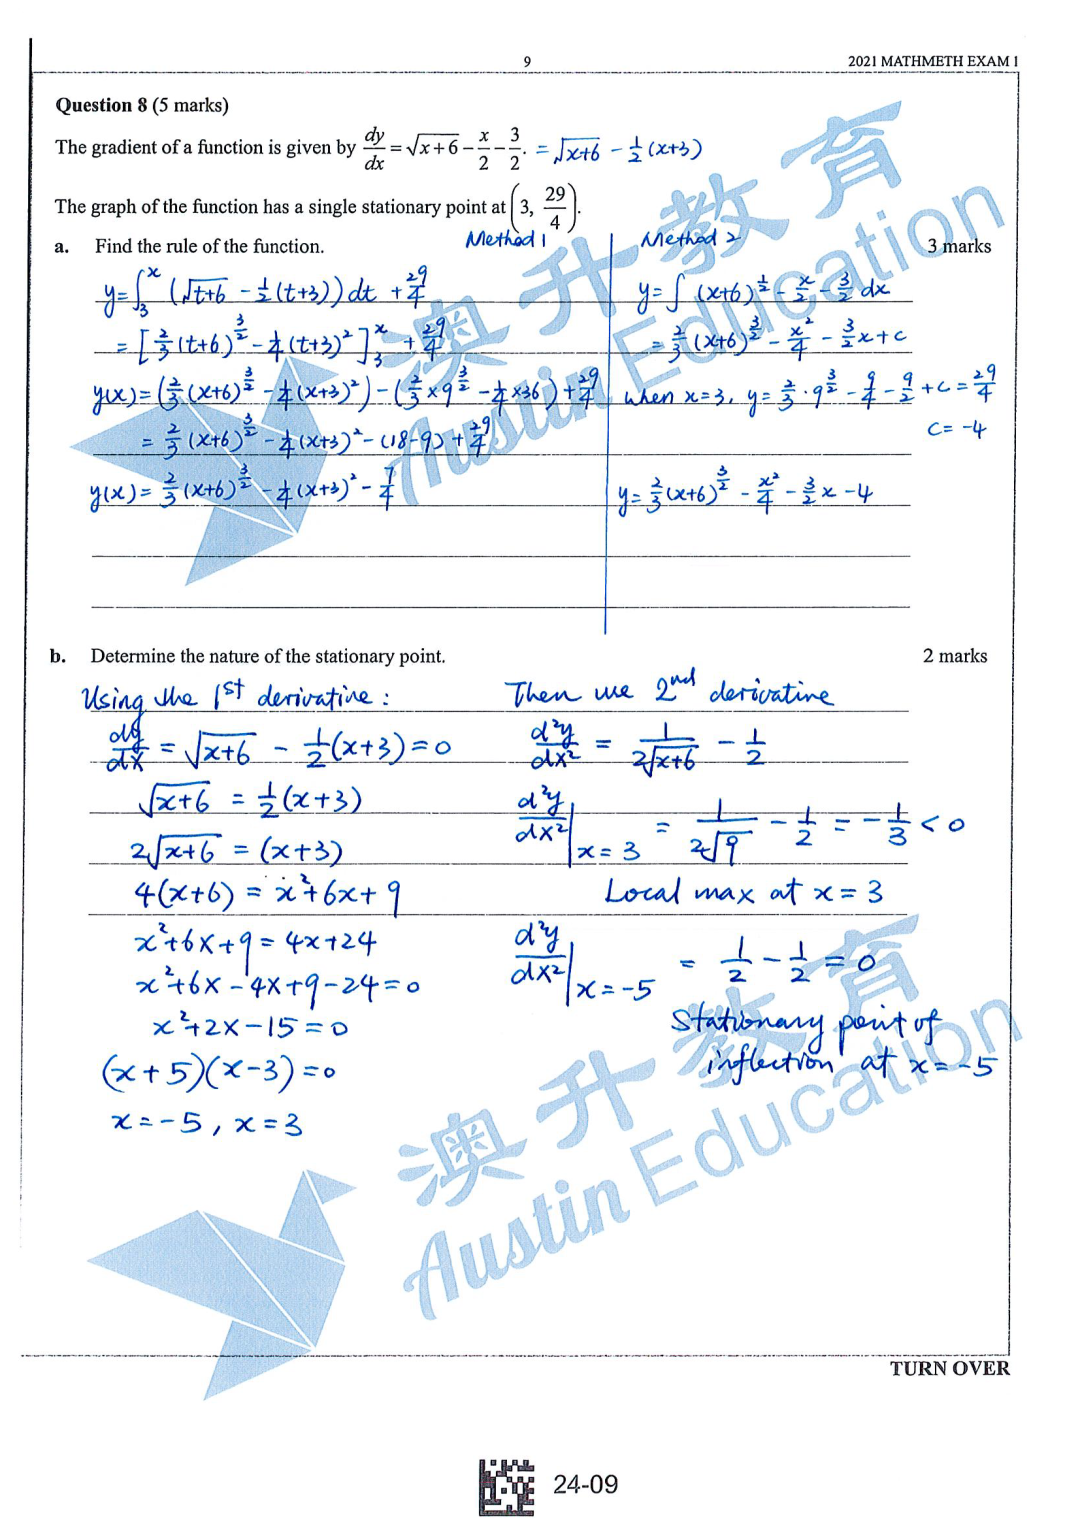 9
2021 MATHMETH EXAM 1
Question 8 (5 marks)
The gradient of a function is given by dy/dx = √(x+6) − x/2 − 3/2. = √(x+6) − 1/2 (x+3)
The graph of the function has a single stationary point at (3, 29/4).
a. Find the rule of the function. 3 marks
Method 1
y = ∫₃ˣ (√(t+6) − 1/2 (t+3)) dt + 29/4
= [2/3 (t+6)^(3/2) − 1/4 (t+3)²]₃ˣ + 29/4
y(x) = (2/3 (x+6)^(3/2) − 1/4 (x+3)²) − (2/3 × 9^(3/2) − 1/4 × 36) + 29/4
= 2/3 (x+6)^(3/2) − 1/4 (x+3)² − (18−9) + 29/4
y(x) = 2/3 (x+6)^(3/2) − 1/4 (x+3)² − 7/4
Method 2
y = ∫ (x+6)^(1/2) − x/2 − 3/2 dx
= 2/3 (x+6)^(3/2) − x²/4 − 3/2 x + c
when x=3, y = 2/3 · 9^(3/2) − 9/4 − 9/2 + c = 29/4
c = −4
y = 2/3 (x+6)^(3/2) − x²/4 − 3/2 x − 4
b. Determine the nature of the stationary point. 2 marks
Using the 1st derivative :
dy/dx = √(x+6) − 1/2 (x+3) = 0
√(x+6) = 1/2 (x+3)
2√(x+6) = (x+3)
4(x+6) = x²+6x+9
x²+6x+9 = 4x+24
x²+6x−4x+9−24 = 0
x²+2x−15 = 0
(x+5)(x−3) = 0
x = −5, x = 3
Then use 2nd derivative
d²y/dx² = 1/(2√(x+6)) − 1/2
d²y/dx² | x=3 = 1/(2√9) − 1/2 = −1/3 < 0
Local max at x = 3
d²y/dx² | x=−5 = 1/2 − 1/2 = 0
Stationary point of
inflection at x = −5
澳升教育
Austin Education
澳升教育
Austin Education
TURN OVER
24-09